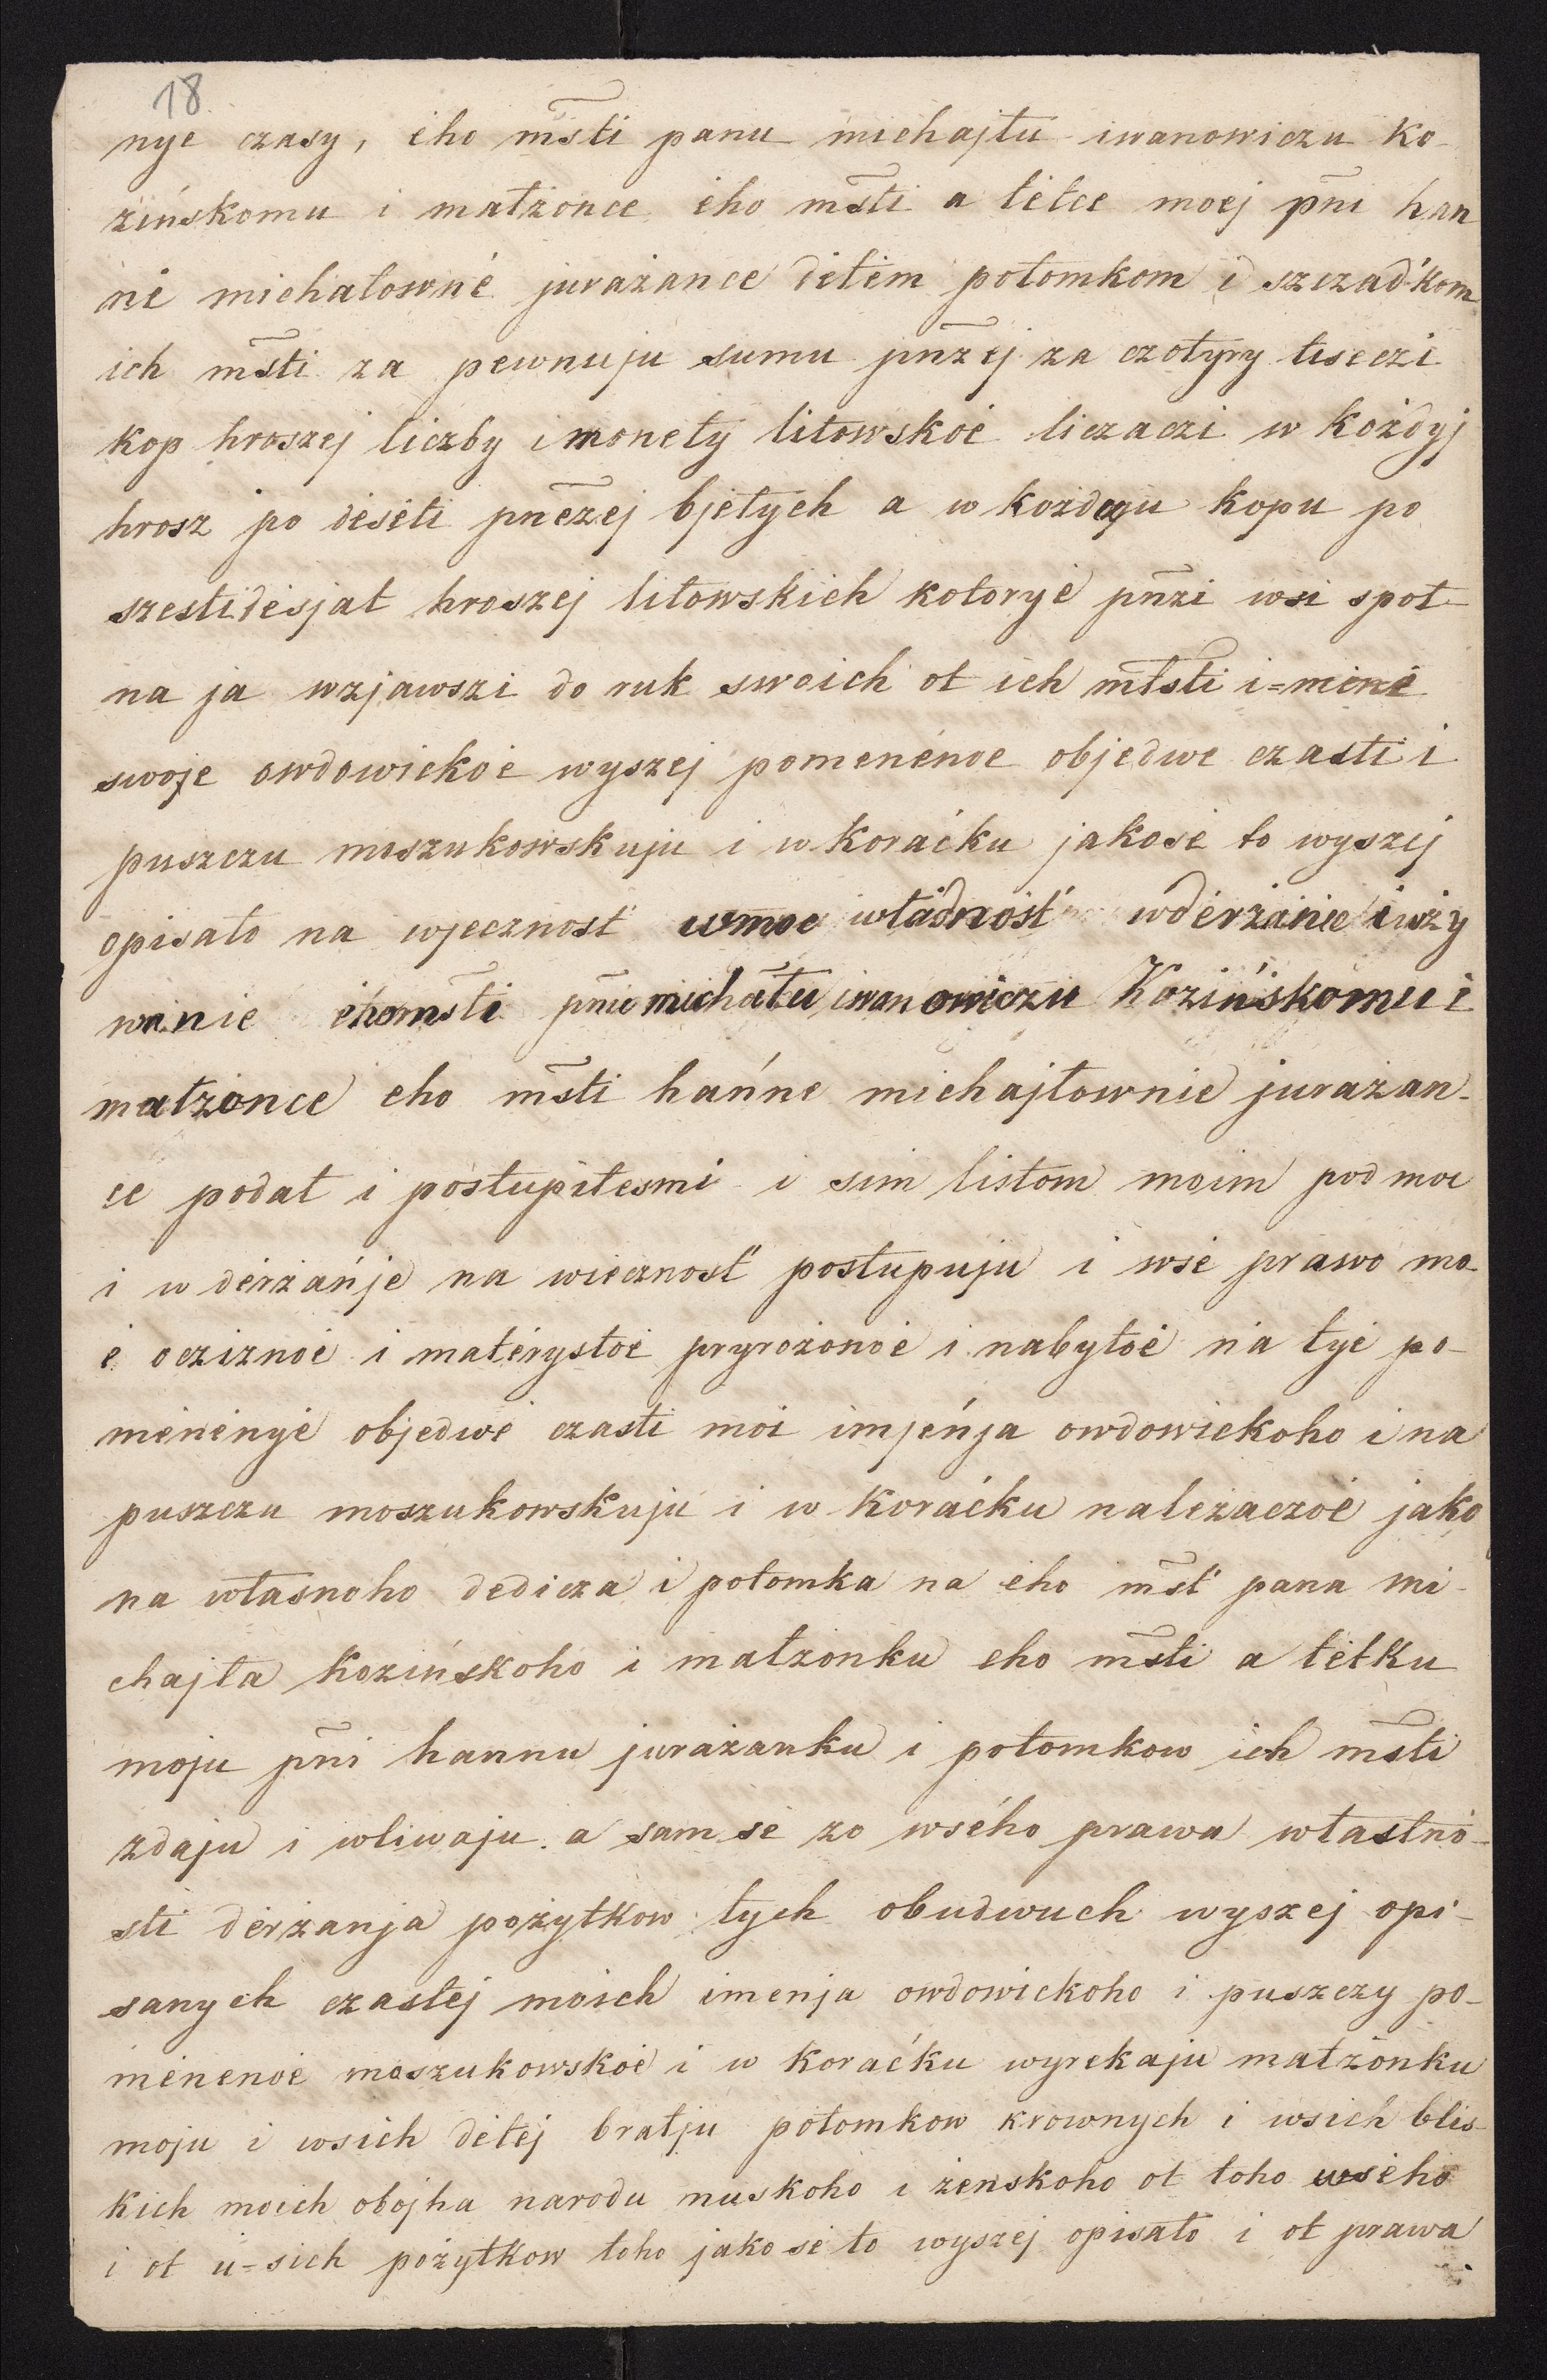 18
nye czasy, eho mśti panu michajłu iwanowiczu ko-
zińskomu i małżonce eho mśti a tetce mojej pni han
nė michałownė jurażance dėtėm potomkom i szczadkom
ich mśti za pewnuju sumu pnzej za czotyry tiseczi
kop hroszej liczby i monety litowskoė liczaczi w kożdyj
hrosz po dėsėti pnezej bjełych a w kożduju kopu po
szestidesjat hroszej litowskich kotoryė pnzi wsi społ-
na ja wzjawszi do ruk swoich ot ich młsti i=minė
swoje owdowickoė wyszej pomenėnoe objedwe czasti i
puszczu moszukowskuju i w koraćku jakosė to wyszej
opisało na wjecznost' wmoc władnost' wdėrżanie i uży
wanie ehomśti pnu michału iwanowiczu Kozińskomu i
małżonce eho mśti hańne michajłownie jurażan-
ce podał i postupiłesmi i sim listom moim pod moc
i w dėrżańje na wiecznost' postupuju i wsė prawo mo-
ė ocziznoė i matėrystoė pryrożonoė i nabytoė na tyė po-
mėnėnyė objedwė czasti moi imjeńja owdowickoho i na
puszczu moszukowskuju i w koraćku należaczoė jako
na własnoho dedicza i potomka na eho mśt' pana mi-
chajła kozińskoho i małżonku eho mśti a tėtku
moju pni hannu jurażanku i potomkow ich mśti
zdaju i wliwaju a sam sė zo wsėho prawa włastno-
sti dėrżanja pożytkow tych obudwuch wyszej opi-
sanych czastej moich imenja owdowickoho i puszczy po-
mėnenoė moszukowskoė i w koraćku wyrekaju małżonku
moju i wsich dėtėj bratju potomkow krownych i wsich blis-
kich moich obojha narodu muskoho i żenskoho ot toho wsėho
i ot u=sich pożytkow toho jako sė to wyszej opisało i ot prawa